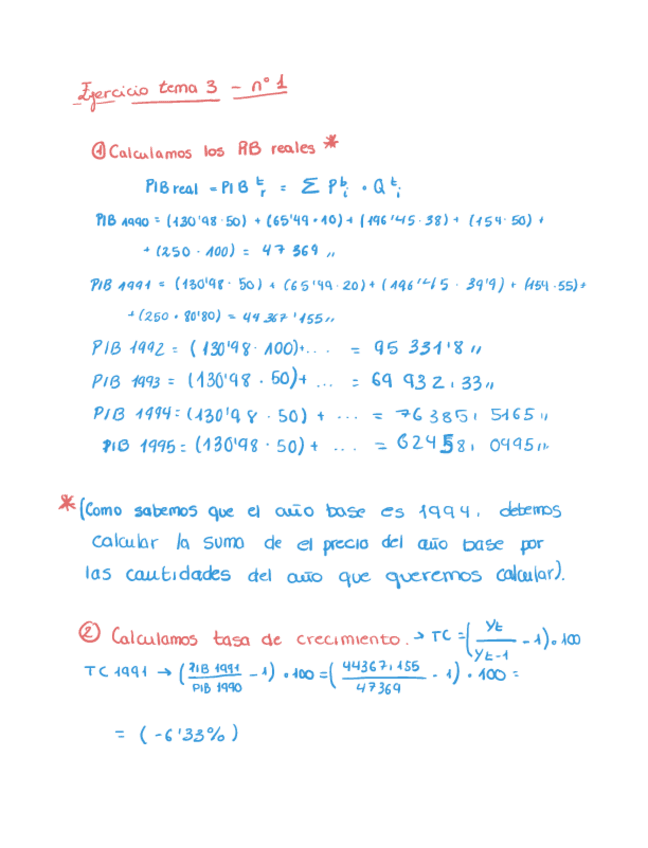 Ejercicio tema 3 - nº 1
① Calculamos los PIB reales *
PIB real = PIB t r = Σ P b i · Q t i
PIB 1990 = (130'98 · 50) + (65'49 · 10) + (196'45 · 38) + (154 · 50) +
+ (250 · 100) = 47 369 ,,
PIB 1991 = (130'98 · 50) + (65'49 · 20) + (196'45 · 39'9) + (154 · 55) +
+ (250 · 80'80) = 44 367'155 ,,
PIB 1992 = (130'98 · 100) + ... = 95 331'8 ,,
PIB 1993 = (130'98 · 50) + ... = 69 932,33 ,,
PIB 1994 = (130'98 · 50) + ... = 76 385,5165 ,,
PIB 1995 = (130'98 · 50) + ... = 62458,0495 ,,
* (Como sabemos que el año base es 1994, debemos
calcular la suma de el precio del año base por
las cantidades del año que queremos calcular).
② Calculamos tasa de crecimiento. → TC = (Yt / Yt-1 - 1) · 100
TC 1991 → (PIB 1991 / PIB 1990 - 1) · 100 = (44367,155 / 47369 - 1) · 100 =
= (-6'33%)